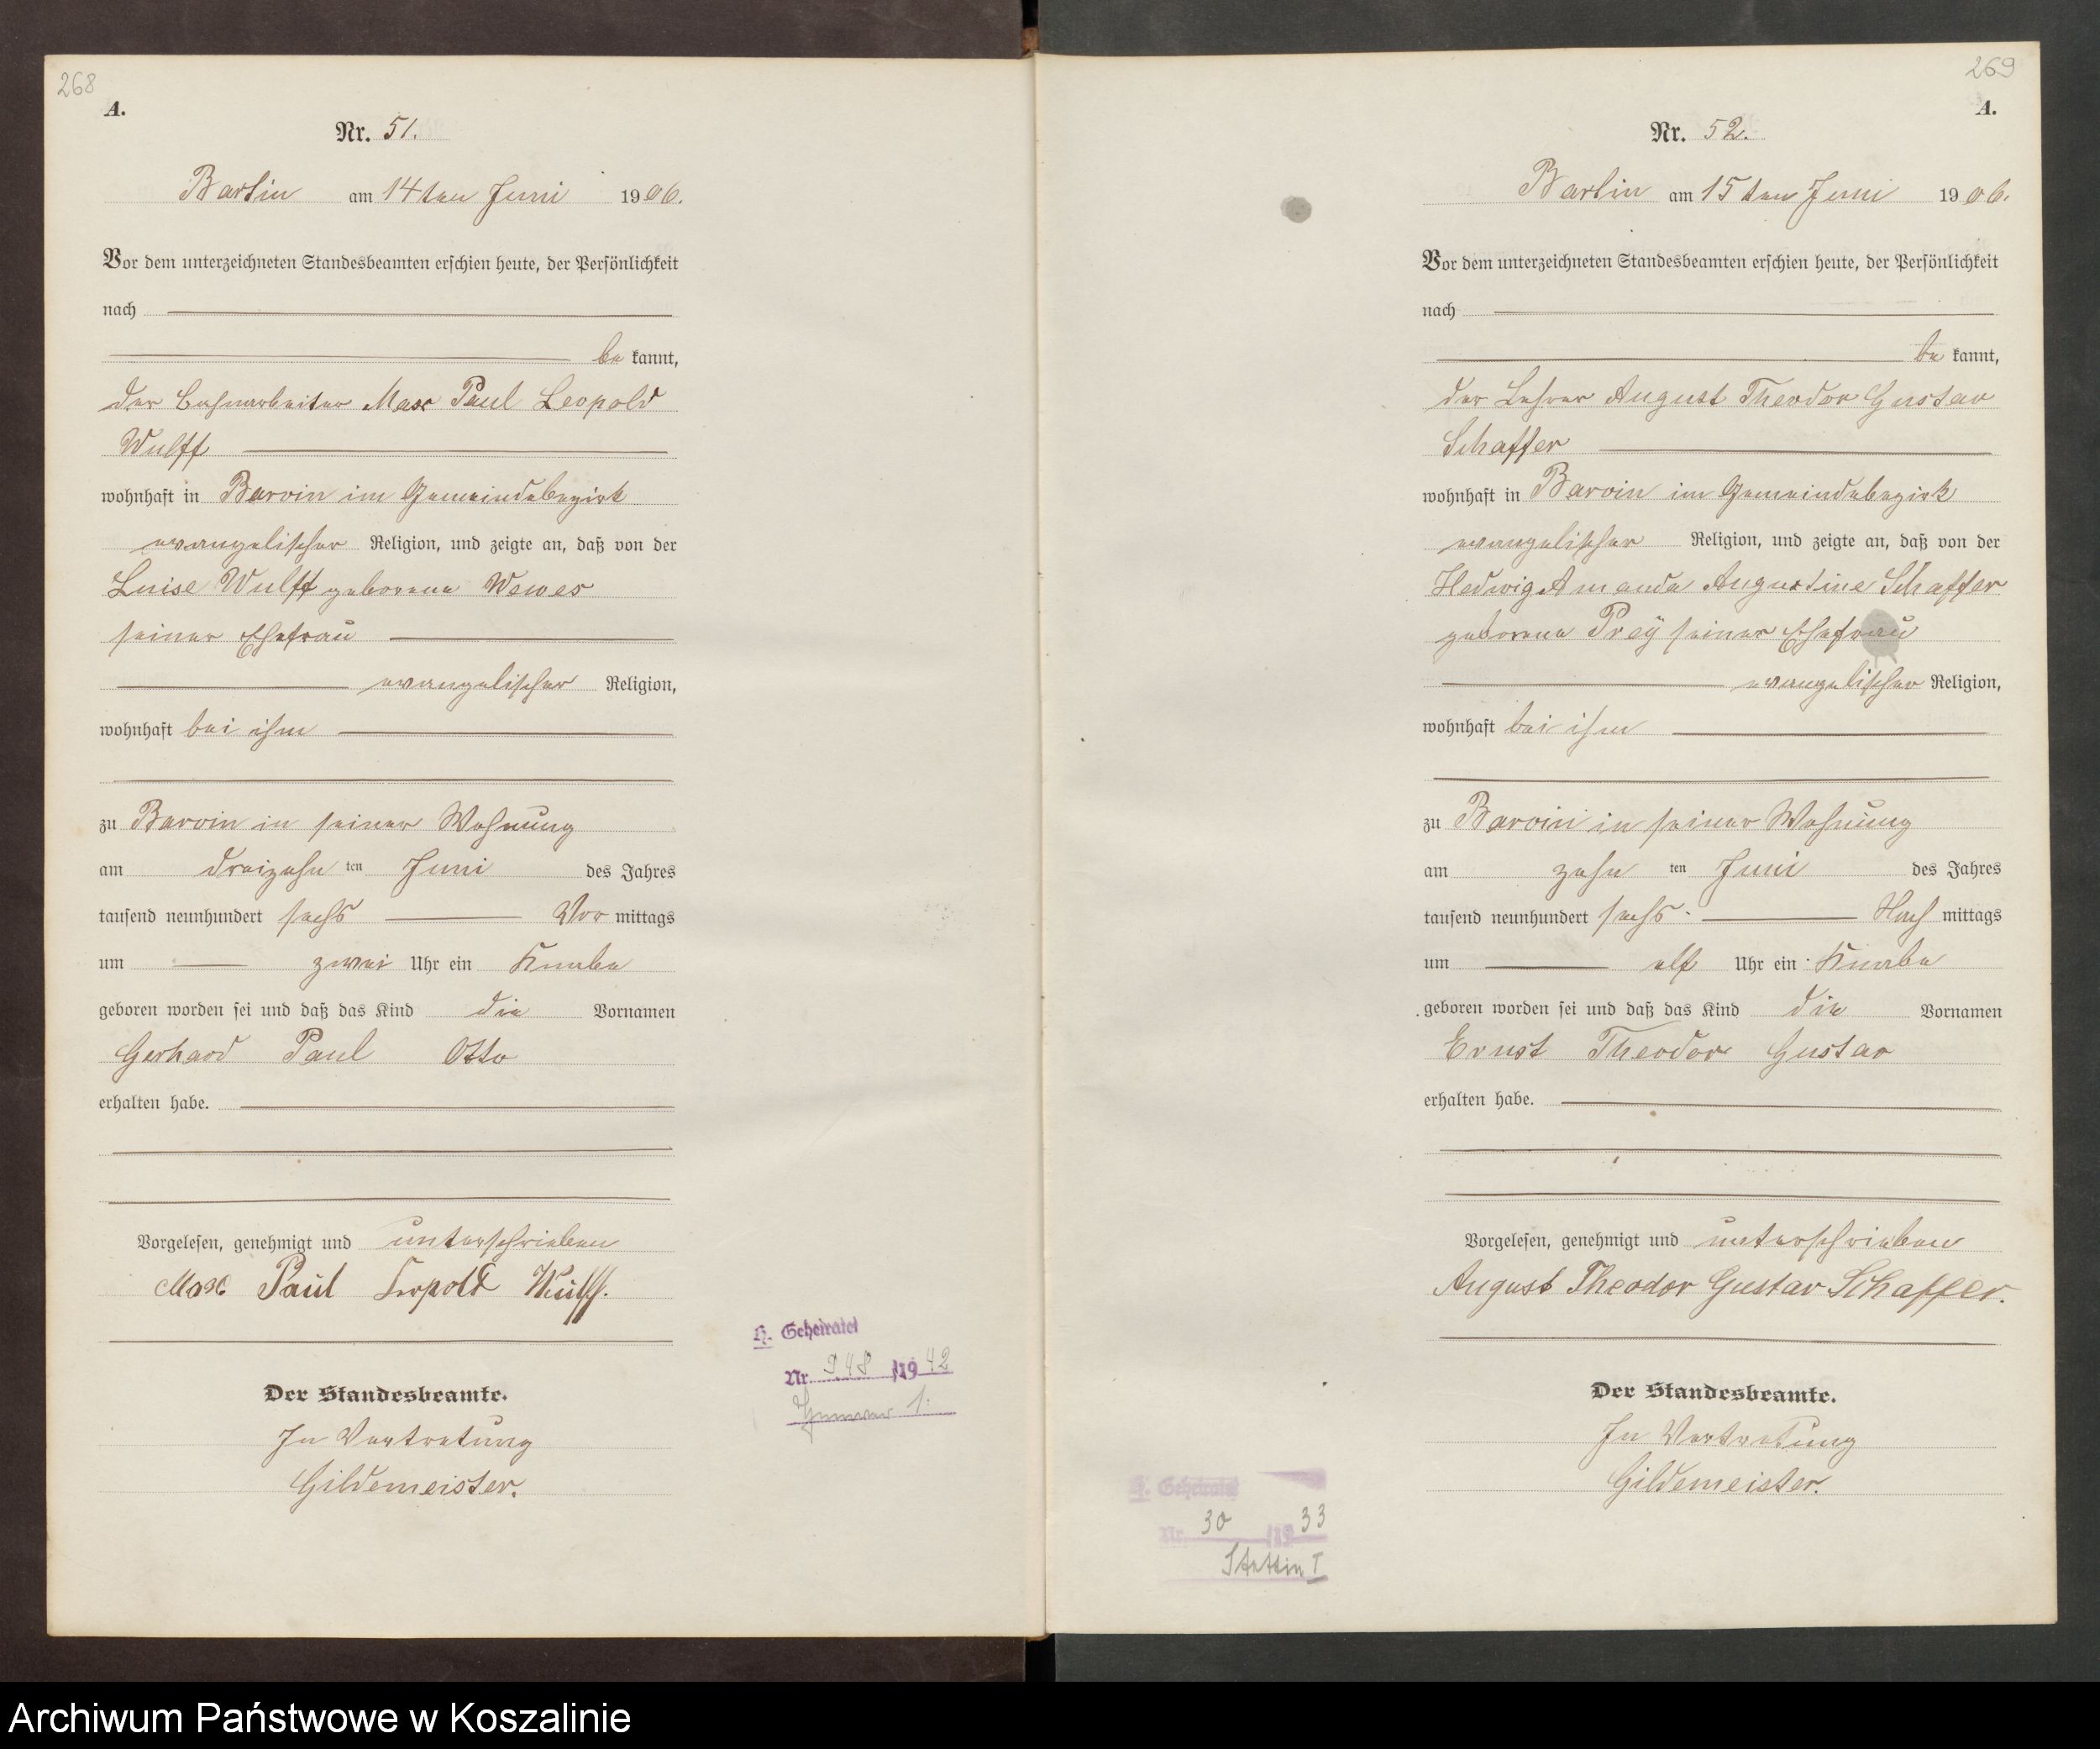 268
A.
Nr. 51.
Bartin am 14ten Juni 1906.
Vor dem unterzeichneten Standesbeamten erschien heute, der Persönlichkeit
nach
be kannt,
der Bahnarbeiter Max Paul Leopold
Wulff
wohnhaft in Barvin im Gemeindebezirk
evangelischer Religion, und zeigte an, daß von der
Luise Wulff geborene Wewes
seiner Ehefrau
evangelischer Religion,
wohnhaft bei ihm
zu Barvin in seiner Wohnung
am dreizehn ten Juni des Jahres
tausend neunhundert sechs Vor mittags
um zwei Uhr ein Knabe
geboren worden sei und daß das Kind die Vornamen
Gerhard Paul Otto
erhalten habe.
Vorgelesen, genehmigt und unterschrieben
Max Paul Leopold Wulff.
Der Standesbeamte.
In Vertretung
Gildemeister.
H. Geheiratet
Nr. 948 /1942
1.
269
A.
Nr. 52.
Bartin am 15ten Juni 1906.
Vor dem unterzeichneten Standesbeamten erschien heute, der Persönlichkeit
nach
be kannt,
der Lehrer August Theodor Gustav
Schaffer
wohnhaft in Barvin im Gemeindebezirk
evangelischer Religion, und zeigte an, daß von der
Hedwig Amanda Augustine Schaffer
geborene Preÿ seiner Ehefrau
evangelischer Religion,
wohnhaft bei ihm
zu Barvin in seiner Wohnung
am zehn ten Juni des Jahres
tausend neunhundert sechs Nach mittags
um elf Uhr ein Knabe
geboren worden sei und daß das Kind die Vornamen
Ernst Theodor Gustav
erhalten habe.
Vorgelesen, genehmigt und unterschrieben
August Theodor Gustav Schaffer.
Der Standesbeamte.
In Vertretung
Gildemeister.
H. Geheiratet
Nr. 30 /1933
Stettin I
Archiwum Państwowe w Koszalinie